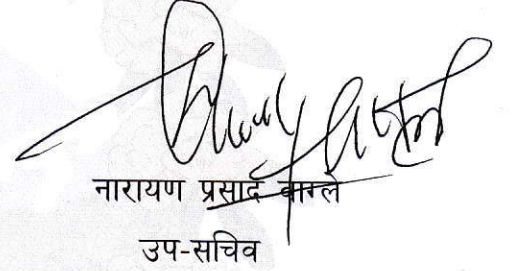 नारायण प्रसाद वाग्ले
उप-सचिव